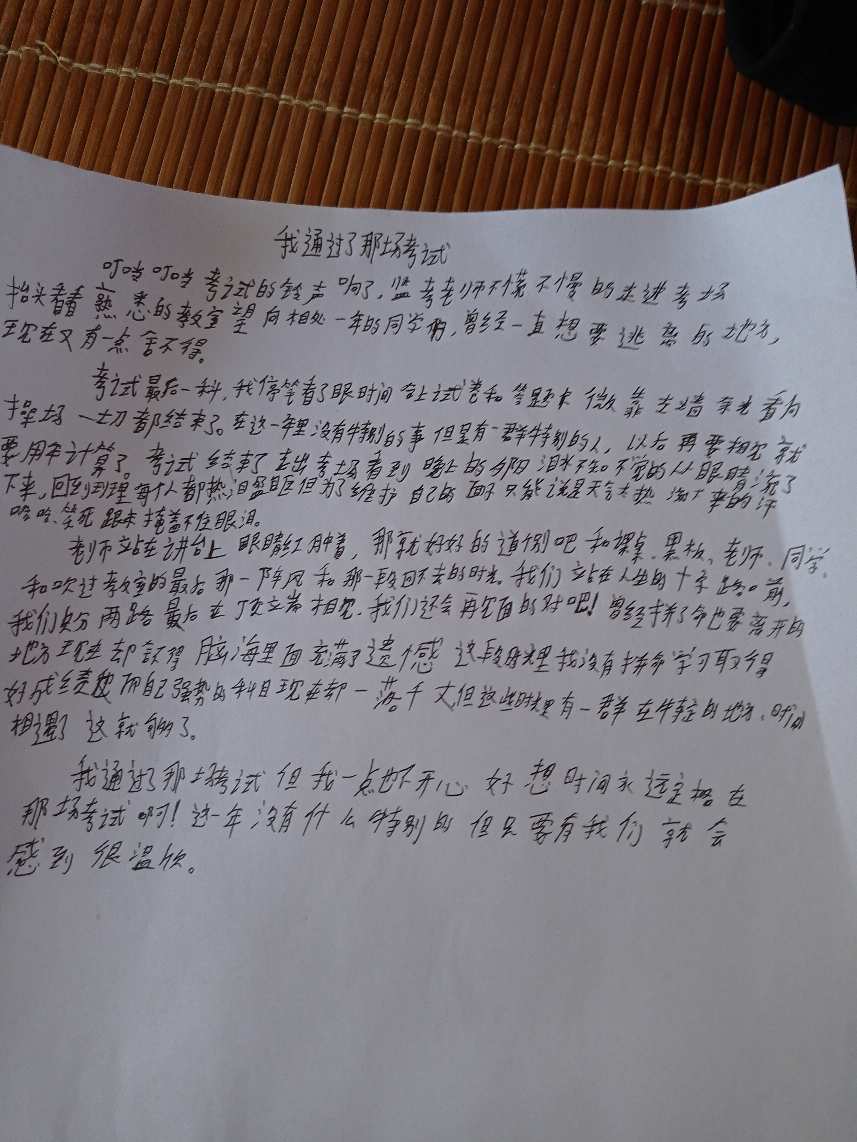 我通过了那场考试
叮当叮当 考试的铃声响了，监考老师不慌不慢的走进考场
抬头看看熟悉的教室望向相处一年的同学们，曾经一直想要逃离的地方，
现在又有一点舍不得。
考试最后一科，我停笔看了眼时间合上试卷和答题卡 微靠左墙 看向
操场 一切都结束了。在这一年里没有特别的事但是有一群特别的人，以后再要相见就
要用年计算了。考试结束了走出考场看到晚上的夕阳泪水不知不觉的从眼睛流了
下来，回到班里每个人都热泪盈眶但为了维护自己的面子只能说是天气太热流下来的汗
哈哈、笑死 跟本掩盖不住眼泪。
老师站在讲台上眼睛红肿着，那就好好的道别吧 和课桌、黑板、老师、同学、
和吹过教室的最后那一阵风和那一段回不去的时光。我们站在人生的十字路口前，
我们兵分两路最后在顶峰相见。我们还会再见面的对吧！曾经拼了命也要离开的
地方现在却觉得脑海里面充满了遗憾 这段时间里我没有拼命学习取得
好成绩 而自己强势的科目现在却一落千丈，但这些时间里有一群在年轻的地方、时间
相遇了 这就够了。
我通过了那场考试 但我一点也不开心 好想时间永远定格在
那场考试啊！这一年没有什么特别的 但只要有我们就会
感到很温欣。